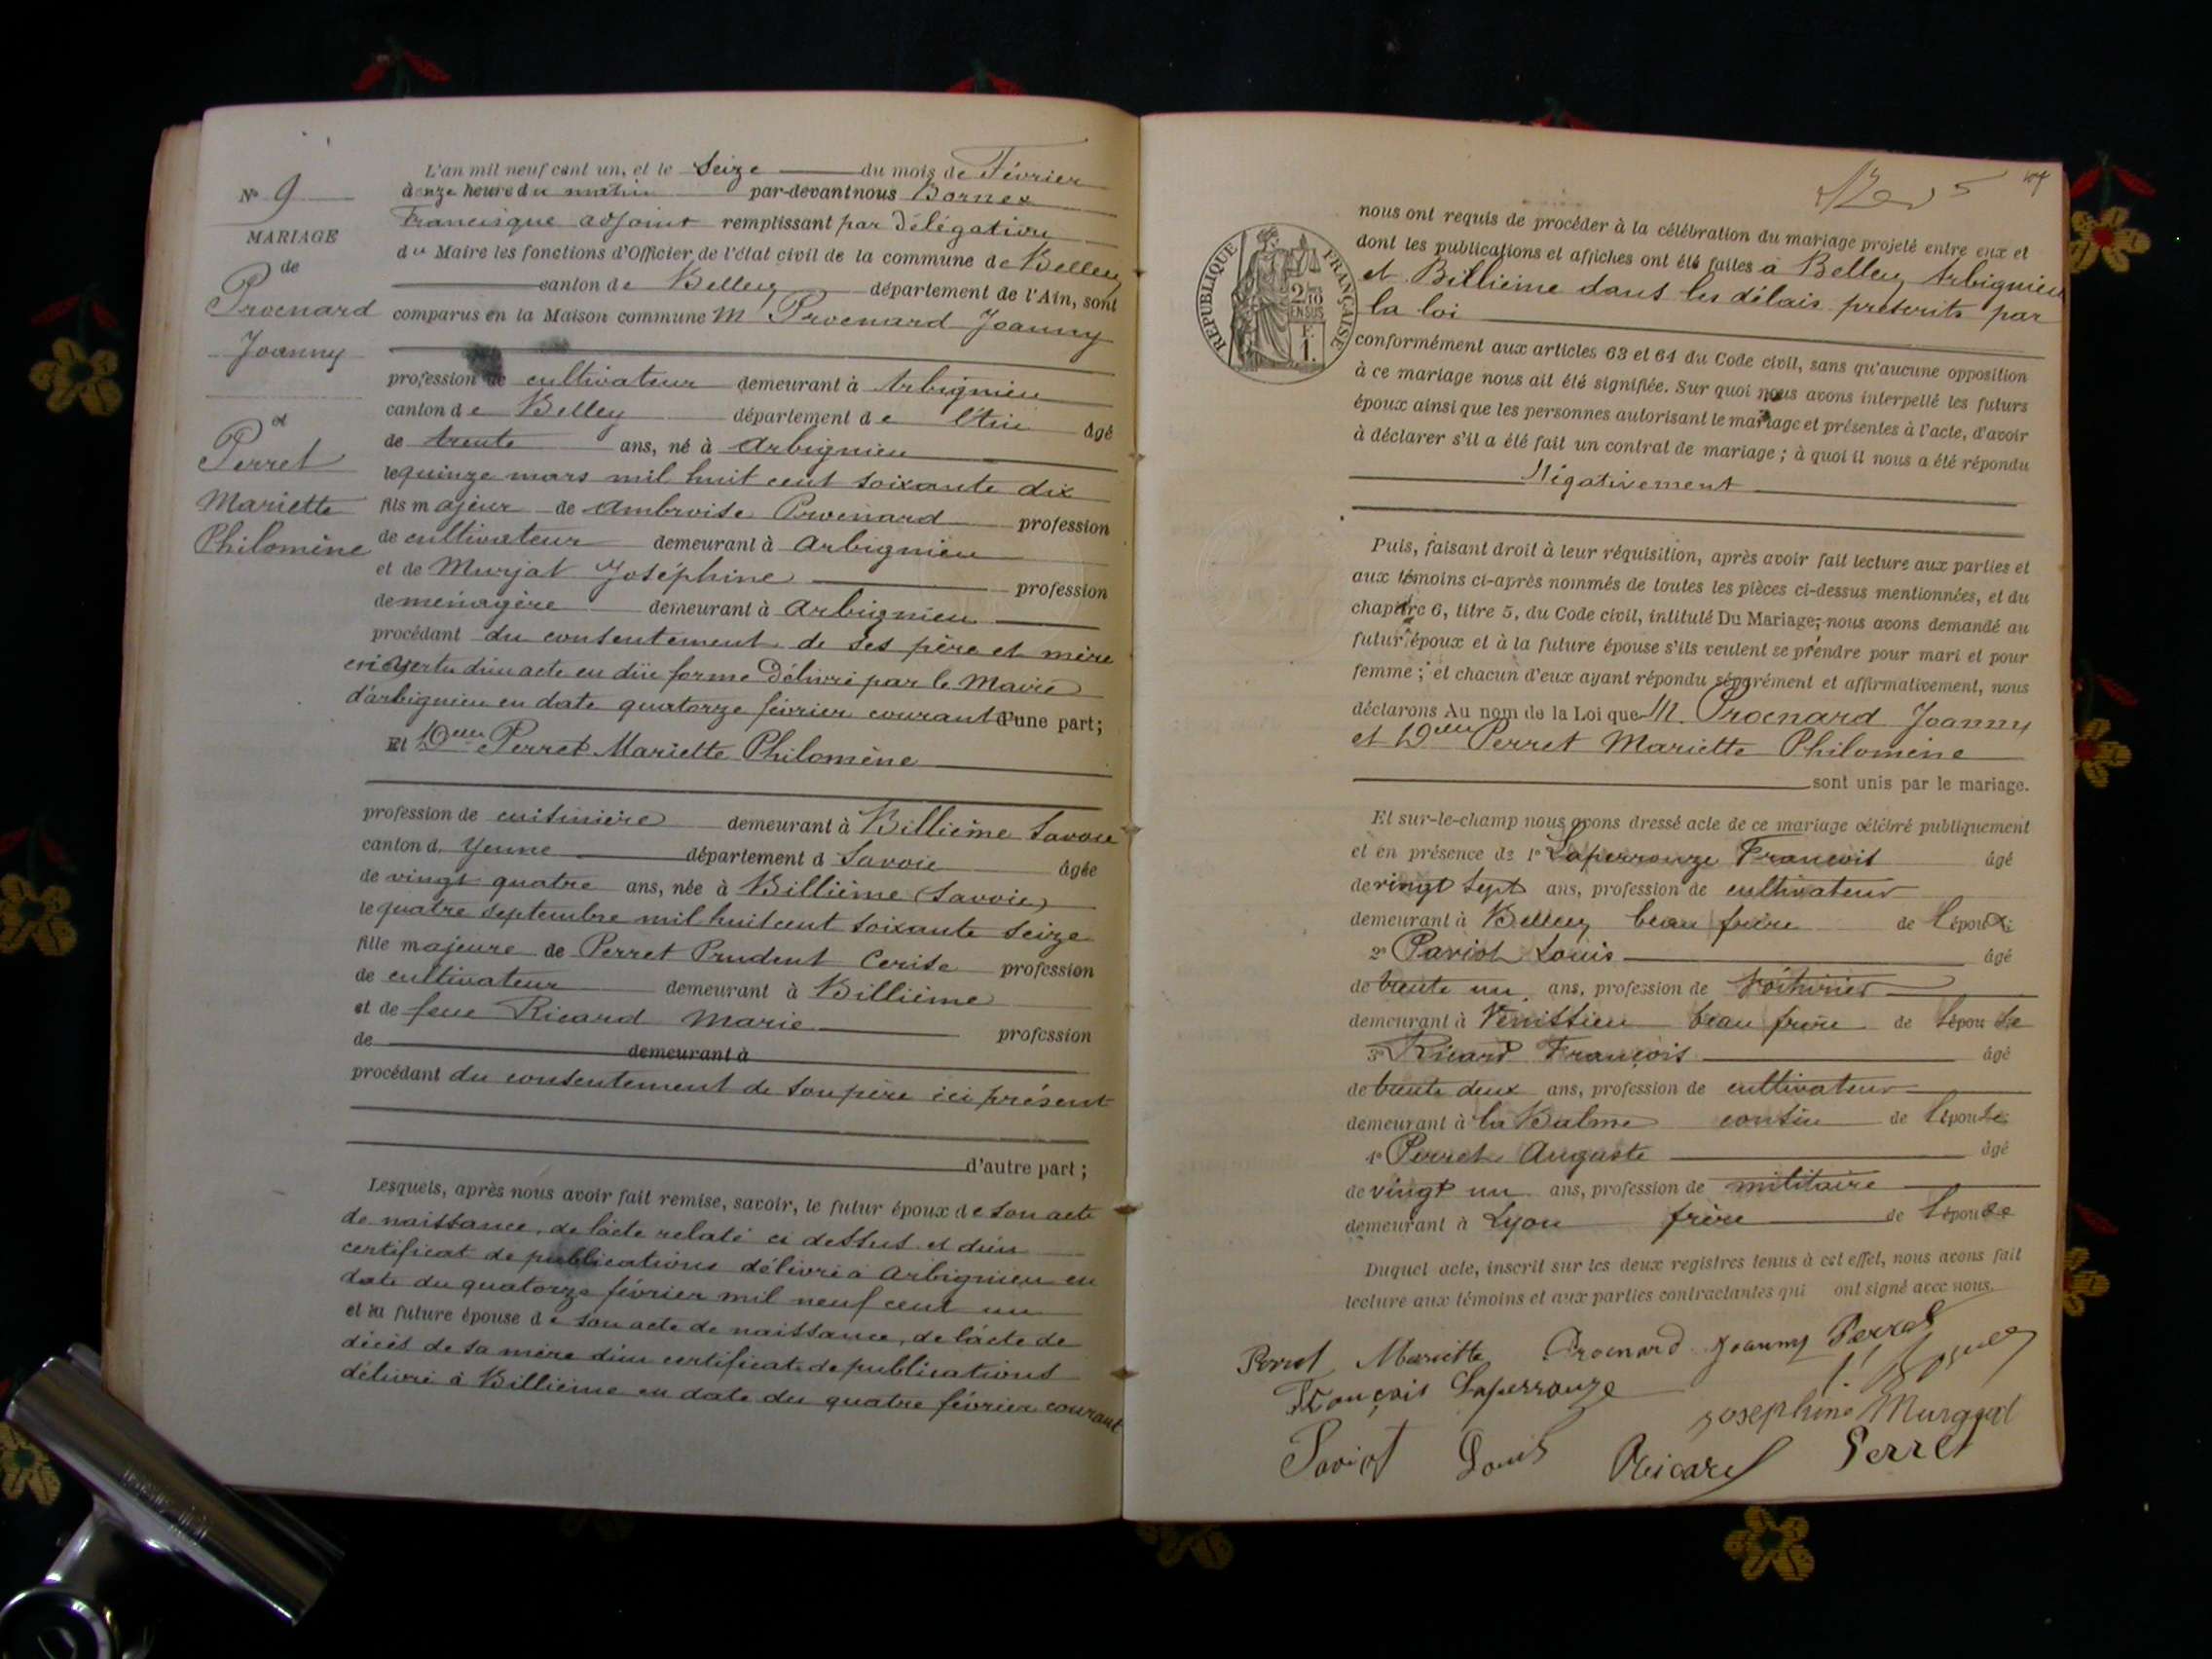 N° 9
MARIAGE
de
Proenard
Joanny
et
Perret
Mariette
Philomène
L'an mil neuf cent un, et le Seize du mois de Février
à onze heure du matin par-devant nous Bornex
Francisque adjoint remplissant par Délégation
du Maire les fonctions d'Officier de l'état civil de la commune de Belley
canton de Belley département de l'Ain, sont
comparus en la Maison commune M Proenard Joanny
profession de cultivateur demeurant à Arbignieu
canton de Belley département de l'Ain âgé
de trente ans, né à Arbignieu
le quinze mars mil huit cent soixante dix
fils majeur de Ambroise Proenard profession
de cultivateur demeurant à Arbignieu
et de Murjat Joséphine profession
de ménagère demeurant à Arbignieu
procédant du consentement de ses père et mère
en vertu d'un acte en dûe forme Délivré par le Maire
d'arbignieu en date quatorze février courant d'une part;
Et Delle Perret Mariette Philomène
profession de cuisinière demeurant à Billième Savoie
canton d. Yenne département d Savoie âgée
de vingt quatre ans, née à Billième (Savoie)
le quatre septembre mil huit cent soixante seize
fille majeure de Perret Prudent Cerise profession
de cultivateur demeurant à Billième
et de feue Ricard Marie profession
de demeurant à
procédant du consentement de son père ici présent
d'autre part;
Lesquels, après nous avoir fait remise, savoir, le futur époux de son acte
de naissance, de l'acte relaté ci dessus et d'un
certificat de publications délivré à Arbignieu en
date du quatorze février mil neuf cent un
et la future épouse de son acte de naissance, de l'acte de
décès de sa mère d'un certificat de publications
délivré à Billième en date du quatre février courant
nous ont requis de procéder à la célébration du mariage projeté entre eux et
dont les publications et affiches ont été faites à Belley, Arbignieu
et Billième dans les délais prescrits par
la loi
RÉPUBLIQUE FRANÇAISE
2/10 EN SUS
F. 1.
conformément aux articles 63 et 64 du Code civil, sans qu'aucune opposition
à ce mariage nous ait été signifiée. Sur quoi nous avons interpellé les futurs
époux ainsi que les personnes autorisant le mariage et présentes à l'acte, d'avoir
à déclarer s'il a été fait un contrat de mariage; à quoi il nous a été répondu
Négativement
Puis, faisant droit à leur réquisition, après avoir fait lecture aux parties et
aux témoins ci-après nommés de toutes les pièces ci-dessus mentionnées, et du
chapitre 6, titre 5, du Code civil, intitulé Du Mariage, nous avons demandé au
futur époux et à la future épouse s'ils veulent se prendre pour mari et pour
femme; et chacun d'eux ayant répondu séparément et affirmativement, nous
déclarons Au nom de la Loi que M. Proenard Joanny
et Delle Perret Mariette Philomène
sont unis par le mariage.
Et sur-le-champ nous avons dressé acte de ce mariage célébré publiquement
et en présence de 1° Laperrouze François âgé
de vingt sept ans, profession de cultivateur
demeurant à Belley beau frère de l'époux
2° Pariot Louis âgé
de trente un ans, profession de Voiturier
demeurant à Venissieu beau frère de l'épouse
3° Ricard François âgé
de trente deux ans, profession de cultivateur
demeurant à la Balme cousin de l'épouse
4° Perret Auguste âgé
de vingt un ans, profession de militaire
demeurant à Lyon frère de l'épouse
Duquel acte, inscrit sur les deux registres tenus à cet effet, nous avons fait
lecture aux témoins et aux parties contractantes qui ont signé avec nous.
Perret Mariette Proenard Joanny Perret
François Laperrouze
Josephine Murgat
Pariot Louis Ricard Perret